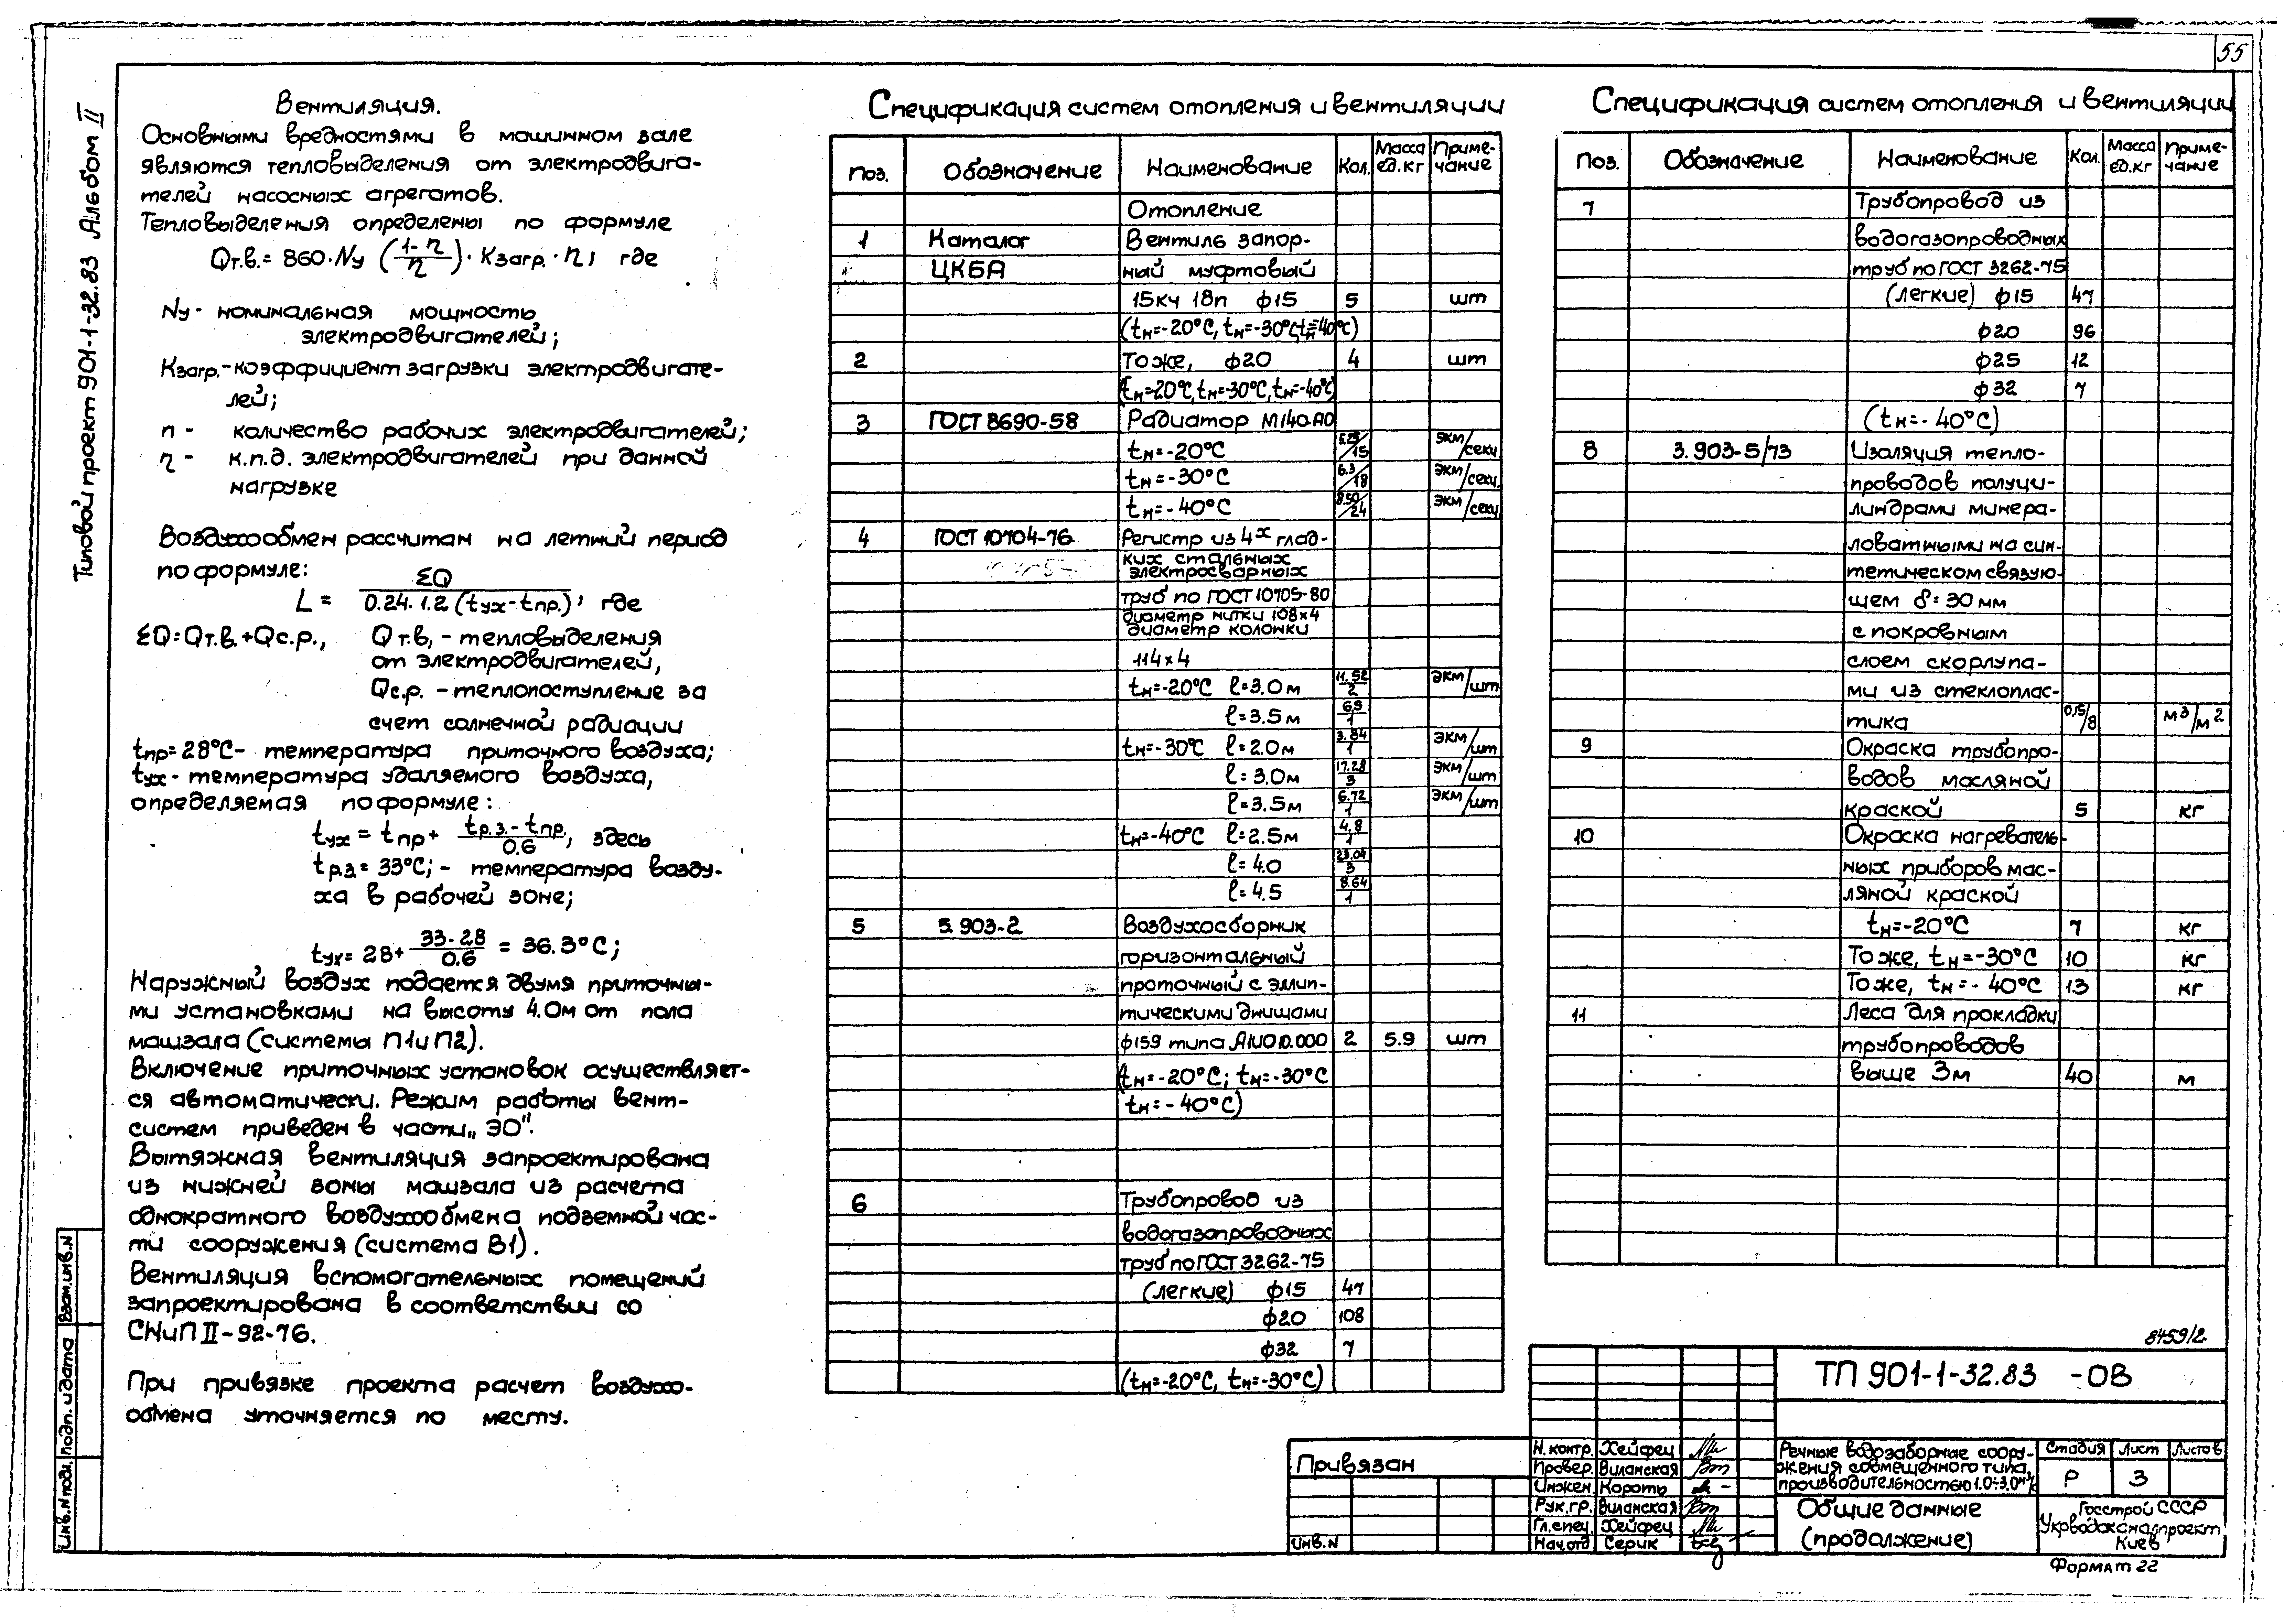 55
Типовой проект 901-1-32.83 Альбом II
Вентиляция.
Основными вредностями в машинном зале
являются тепловыделения от электродвига-
телей насосных агрегатов.
Тепловыделения определены по формуле
Qт.в.= 860·Nу (1-η/η)·Kзагр.·n; где
Nу- номинальная мощность
электродвигателей;
Kзагр.-коэффициент загрузки электродвигате-
лей;
n- количество рабочих электродвигателей;
η- к.п.д. электродвигателей при данной
нагрузке
Воздухообмен рассчитан на летний период
по формуле:
L= ΣQ/0.24·1.2 (tух-tпр.), где
ΣQ=Qт.в.+Qс.р., Qт.в,-тепловыделения
от электродвигателей,
Qс.р. -теплопоступление за
счет солнечной радиации
tпр=28°С- температура приточного воздуха;
tух-температура удаляемого воздуха,
определяемая по формуле:
tух = tпр+ tр.з.-tпр./0.6, здесь
tр.з=33°С;- температура возду-
ха в рабочей зоне;
tух= 28+ 33-28/0.6 = 36.3°С;
Наружный воздух подается двумя приточны-
ми установками на высоту 4.0м от пола
машзала (системы П1 и П2).
Включение приточных установок осуществляет-
ся автоматически. Режим работы вент-
систем приведен в части „ЭО".
Вытяжная вентиляция запроектирована
из нижней зоны машзала из расчета
однократного воздухообмена подземной час-
ти сооружения (система В1).
Вентиляция вспомогательных помещений
запроектирована в соответствии со
СНиП II-92-76.
При привязке проекта расчет воздухо-
обмена уточняется по месту.
Спецификация систем отопления и вентиляции
Поз. Обозначение Наименование Кол. Масса ед.кг Приме-чание
Отопление
1 Каталог Вентиль запор-
ЦКБА ный муфтовый
15кч 18п ф15 5 шт
(tн=-20°С, tн=-30°С, tн=-40°С)
2 То же, ф20 4 шт
(tн=-20°С, tн=-30°С, tн=-40°С)
3 ГОСТ 8690-58 Радиатор М140-АО
tн=-20°С 15 экм/секц
tн=-30°С 6.3/18 экм/секц.
tн=-40°С 8.50/24 экм/секц
4 ГОСТ 10704-76 Регистр из 4х глад-
ких стальных
электросварных
труб по ГОСТ 10705-80
диаметр нитки 108×4
диаметр колонки
114×4
tн=-20°С ℓ=3.0м 11.52/2 экм/шт
ℓ=3.5м 1
tн=-30°С ℓ=2.0м 3.84/1 экм/шт
ℓ=3.0м 17.28/3 экм/шт
ℓ=3.5м 6.72/1 экм/шт
tн=-40°С ℓ=2.5м 4.8/1
ℓ=4.0 23.04/3
ℓ=4.5 8.64/1
5 5.903-2 Воздухосборник
горизонтальный
проточный с эллип-
тическими днищами
ф159 типа А1И010.000 2 5.9 шт
(tн=-20°С; tн=-30°С
tн=-40°С)
6 Трубопровод из
водогазопроводных
труб по ГОСТ 3262-75
(легкие) ф15 47
ф20 108
ф32 7
(tн=-20°С, tн=-30°С)
Спецификация систем отопления и вентиляции
Поз. Обозначение Наименование Кол. Масса ед.кг Приме-чание
7 Трубопровод из
водогазопроводных
труб по ГОСТ 3262-75
(легкие) ф15 47
ф20 96
ф25 12
ф32 7
(tн=-40°С)
8 3.903-5/73 Изоляция тепло-
проводов полуци-
линдрами минера-
ловатными на син-
тетическом связую-
щем δ=30мм
с покровным
слоем скорлупа-
ми из стеклоплас-
тика 0,15/8 м³/м²
9 Окраска трубопро-
водов масляной
краской 5 кг
10 Окраска нагреватель-
ных приборов мас-
ляной краской
tн=-20°С 7 кг
То же, tн=-30°С 10 кг
То же, tн=-40°С 13 кг
11 Леса для прокладки
трубопроводов
выше 3м 40 м
8459/2
ТП 901-1-32.83 -ОВ
Привязан
Инв.N
Н.контр. Хейфец
Провер. Виланская
Инжен. Короть
Рук.гр. Виланская
Гл.спец. Хейфец
Нач.отд Серик
Речные водозаборные соору-
жения совмещенного типа,
производительностью 1.0÷3.0м³/с
Стадия Лист Листов
Р 3
Общие данные
(продолжение)
Госстрой СССР
Укрводоканалпроект
Киев
Формат 22
Инв.N подл. Подп. и дата Взам.инв.N